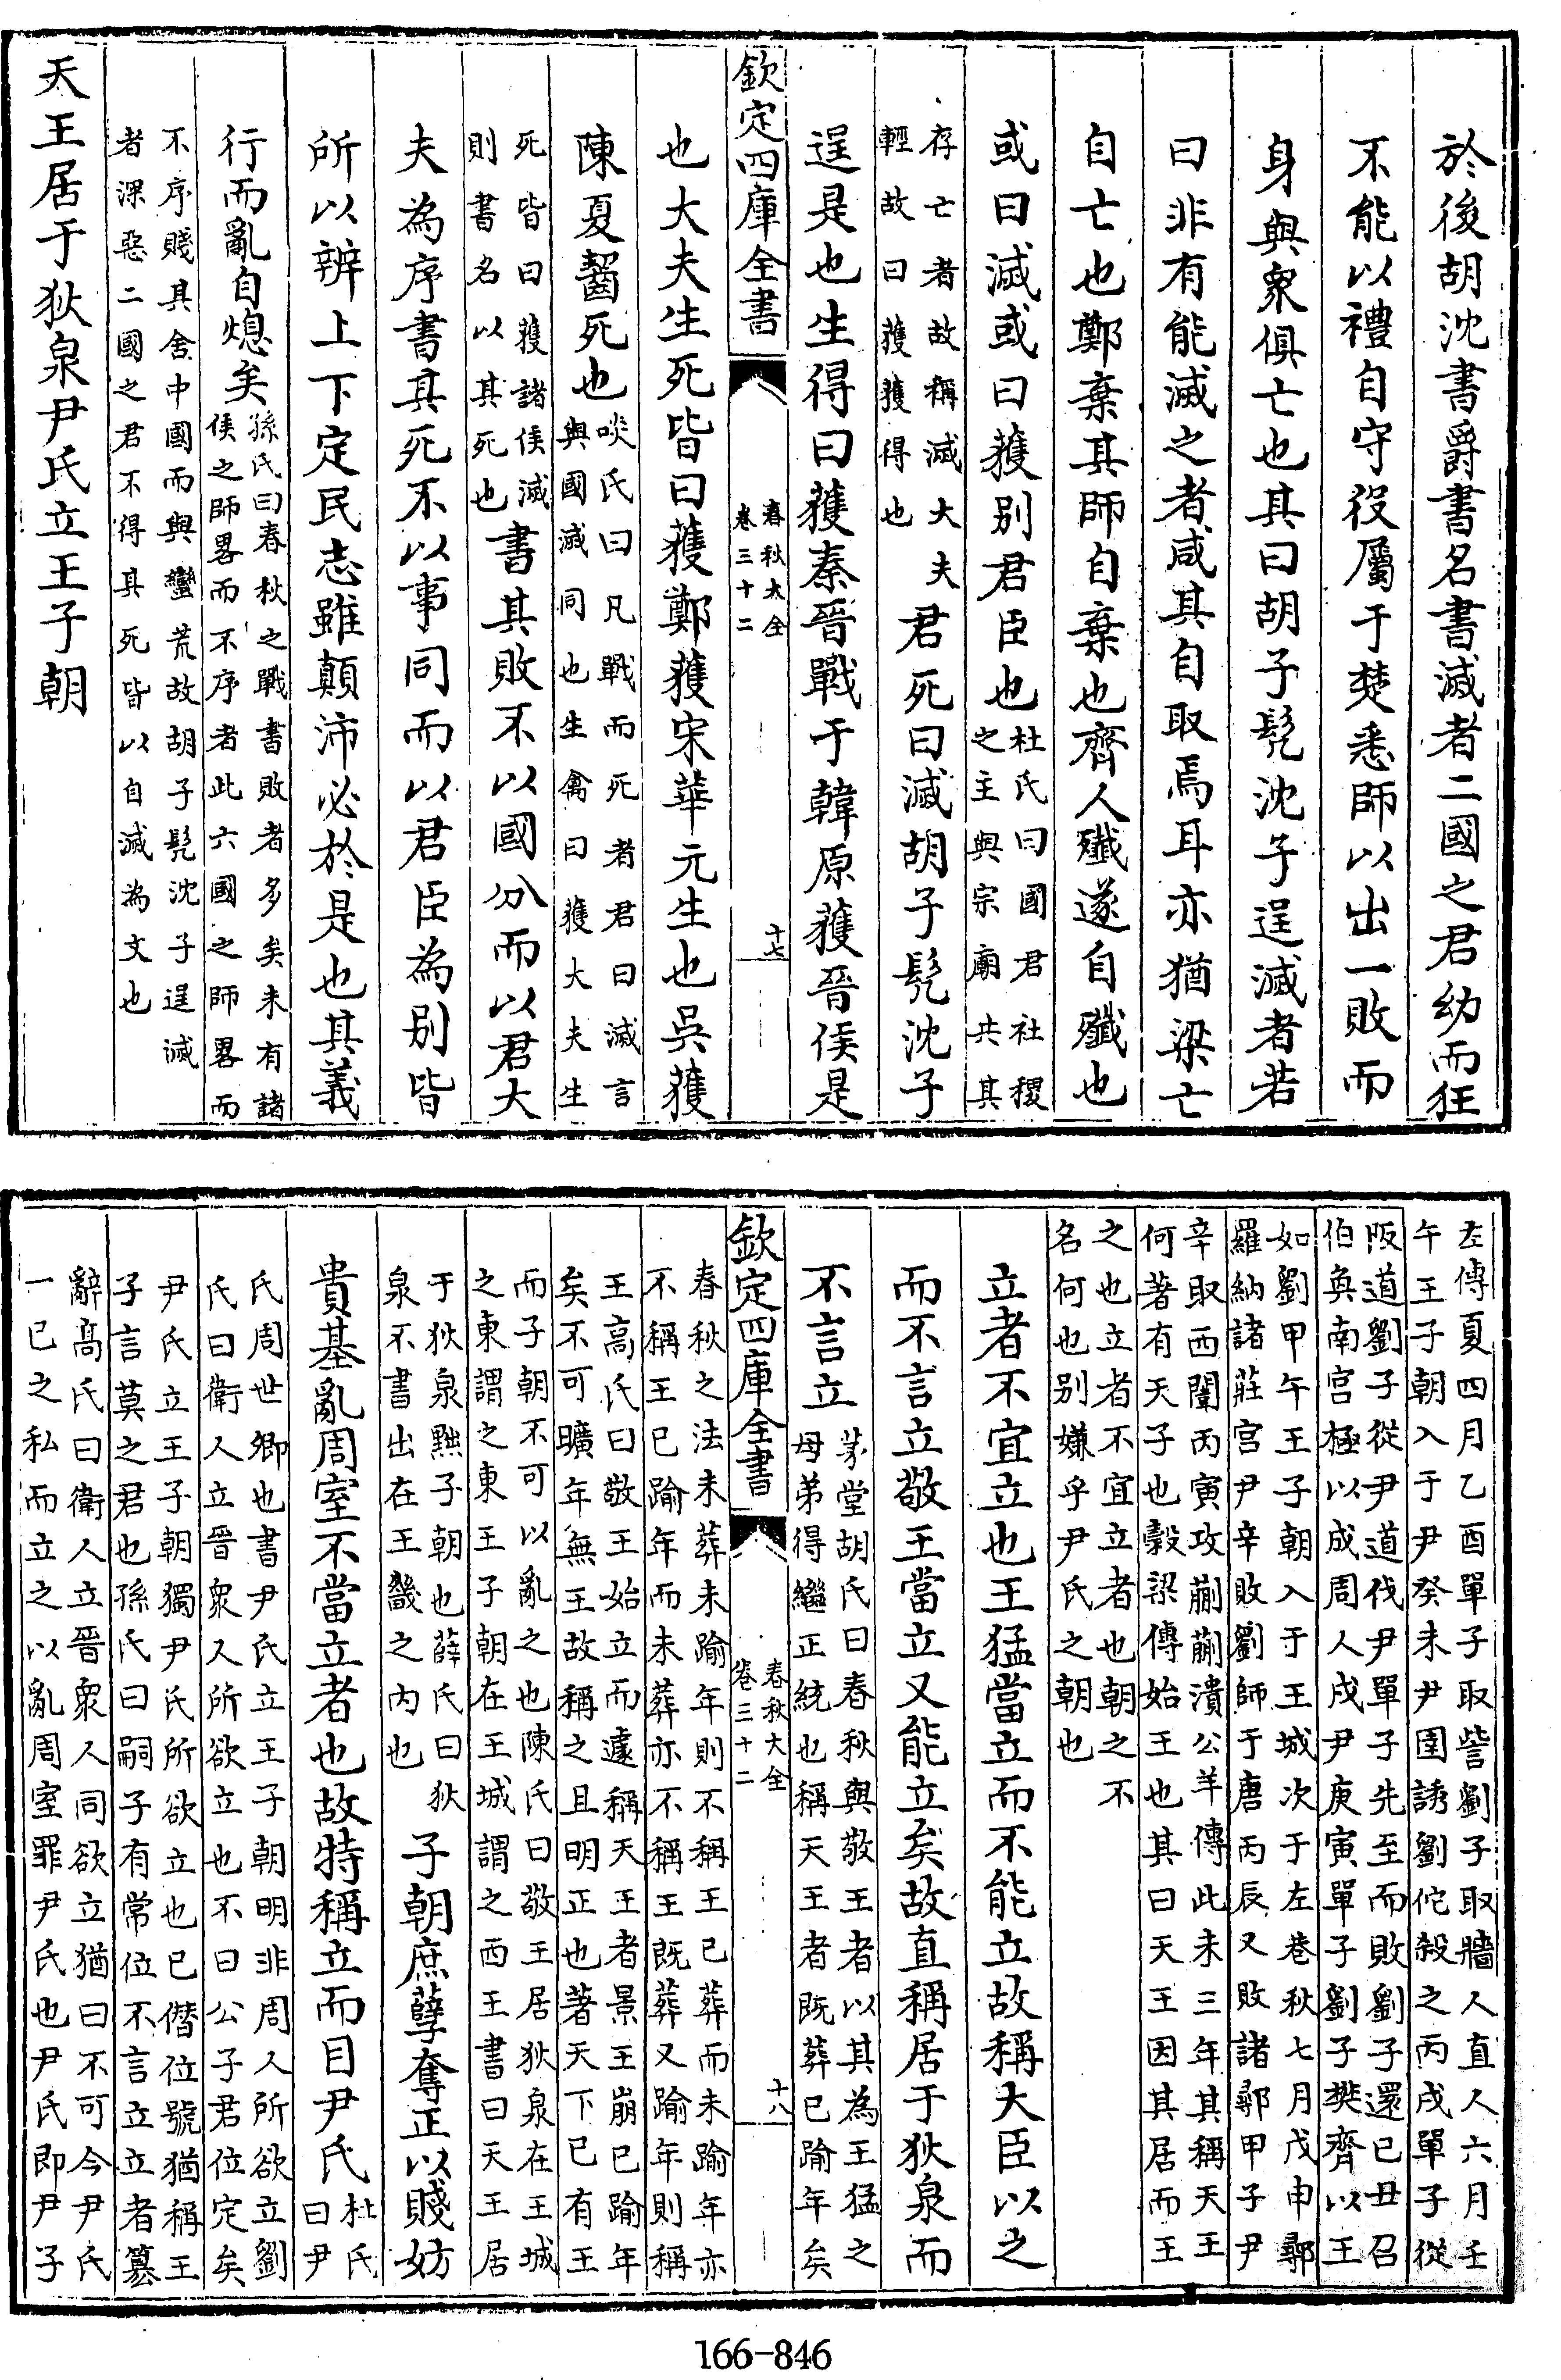 於後胡沈書爵書名書滅者二國之君幼而狂
不能以禮自守役屬于楚悉師以出一敗而
身與衆俱亡也其曰胡子髠沈子逞滅者若
曰非有能滅之者咸其自取焉耳亦猶梁亡
自亡也鄭棄其師自棄也齊人殱遂自殱也
或曰滅或曰獲别君臣也
杜氏曰國君社稷
之主與宗廟共其
存亡者故稱滅大夫
輕故曰獲獲得也
君死曰滅胡子髠沈子
逞是也生得曰獲秦晉戰于韓原獲晉侯是
欽定四庫全書
春秋大全
卷三十二
十七
也大夫生死皆曰獲鄭獲宋華元生也吳獲
陳夏齧死也
啖氏曰凡戰而死者君曰滅言
與國滅同也生禽曰獲大夫生
死皆曰獲諸侯滅
則書名以其死也
書其敗不以國分而以君大
夫為序書其死不以事同而以君臣為别皆
所以辨上下定民志雖顛沛必於是也其義
行而亂自熄矣
孫氏曰春秋之戰書敗者多矣未有諸
侯之師畧而不序者此六國之師畧而
不序賤其舍中國而與蠻荒故胡子髠沈子逞滅
者深惡二國之君不得其死皆以自滅為文也
天王居于狄泉尹氏立王子朝
左傳夏四月乙酉單子取訾劉子取牆人直人六月壬
午王子朝入于尹癸未尹圉誘劉佗殺之丙戌單子從
阪道劉子從尹道伐尹單子先至而敗劉子還己丑召
伯奐南宫極以成周人戍尹庚寅單子劉子樊齊以王
如劉甲午王子朝入于王城次于左巷秋七月戊申鄩
羅納諸莊宫尹辛敗劉師于唐丙辰又敗諸鄩甲子尹
辛取西闈丙寅攻蒯蒯潰公羊傳此未三年其稱天王
何著有天子也糓梁傳始王也其曰天王因其居而王
之也立者不宜立者也朝之不
名何也别嫌乎尹氏之朝也
立者不宜立也王猛當立而不能立故稱大臣以之
而不言立敬王當立又能立矣故直稱居于狄泉而
不言立
茅堂胡氏曰春秋與敬王者以其為王猛之
母弟得繼正統也稱天王者既葬已踰年矣
欽定四庫全書
春秋大全
卷三十二
十八
春秋之法未葬未踰年則不稱王已葬而未踰年亦
不稱王已踰年而未葬亦不稱王既葬又踰年則稱
王高氏曰敬王始立而遽稱天王者景王崩已踰年
矣不可曠年無王故稱之且明正也著天下已有王
而子朝不可以亂之也陳氏曰敬王居狄泉在王城
之東謂之東王子朝在王城謂之西王書曰天王居
于狄泉黜子朝也薛氏曰狄
泉不書出在王畿之内也
子朝庶孽奪正以賤妨
貴基亂周室不當立者也故特稱立而目尹氏
杜氏
曰尹
氏周世卿也書尹氏立王子朝明非周人所欲立劉
氏曰衛人立晉衆人所欲立也不曰公子君位定矣
尹氏立王子朝獨尹氏所欲立也已僭位號猶稱王
子言莫之君也孫氏曰嗣子有常位不言立立者簒
辭高氏曰衛人立晉衆人同欲立猶曰不可今尹氏
一己之私而立之以亂周室罪尹氏也尹氏即尹子
166-846